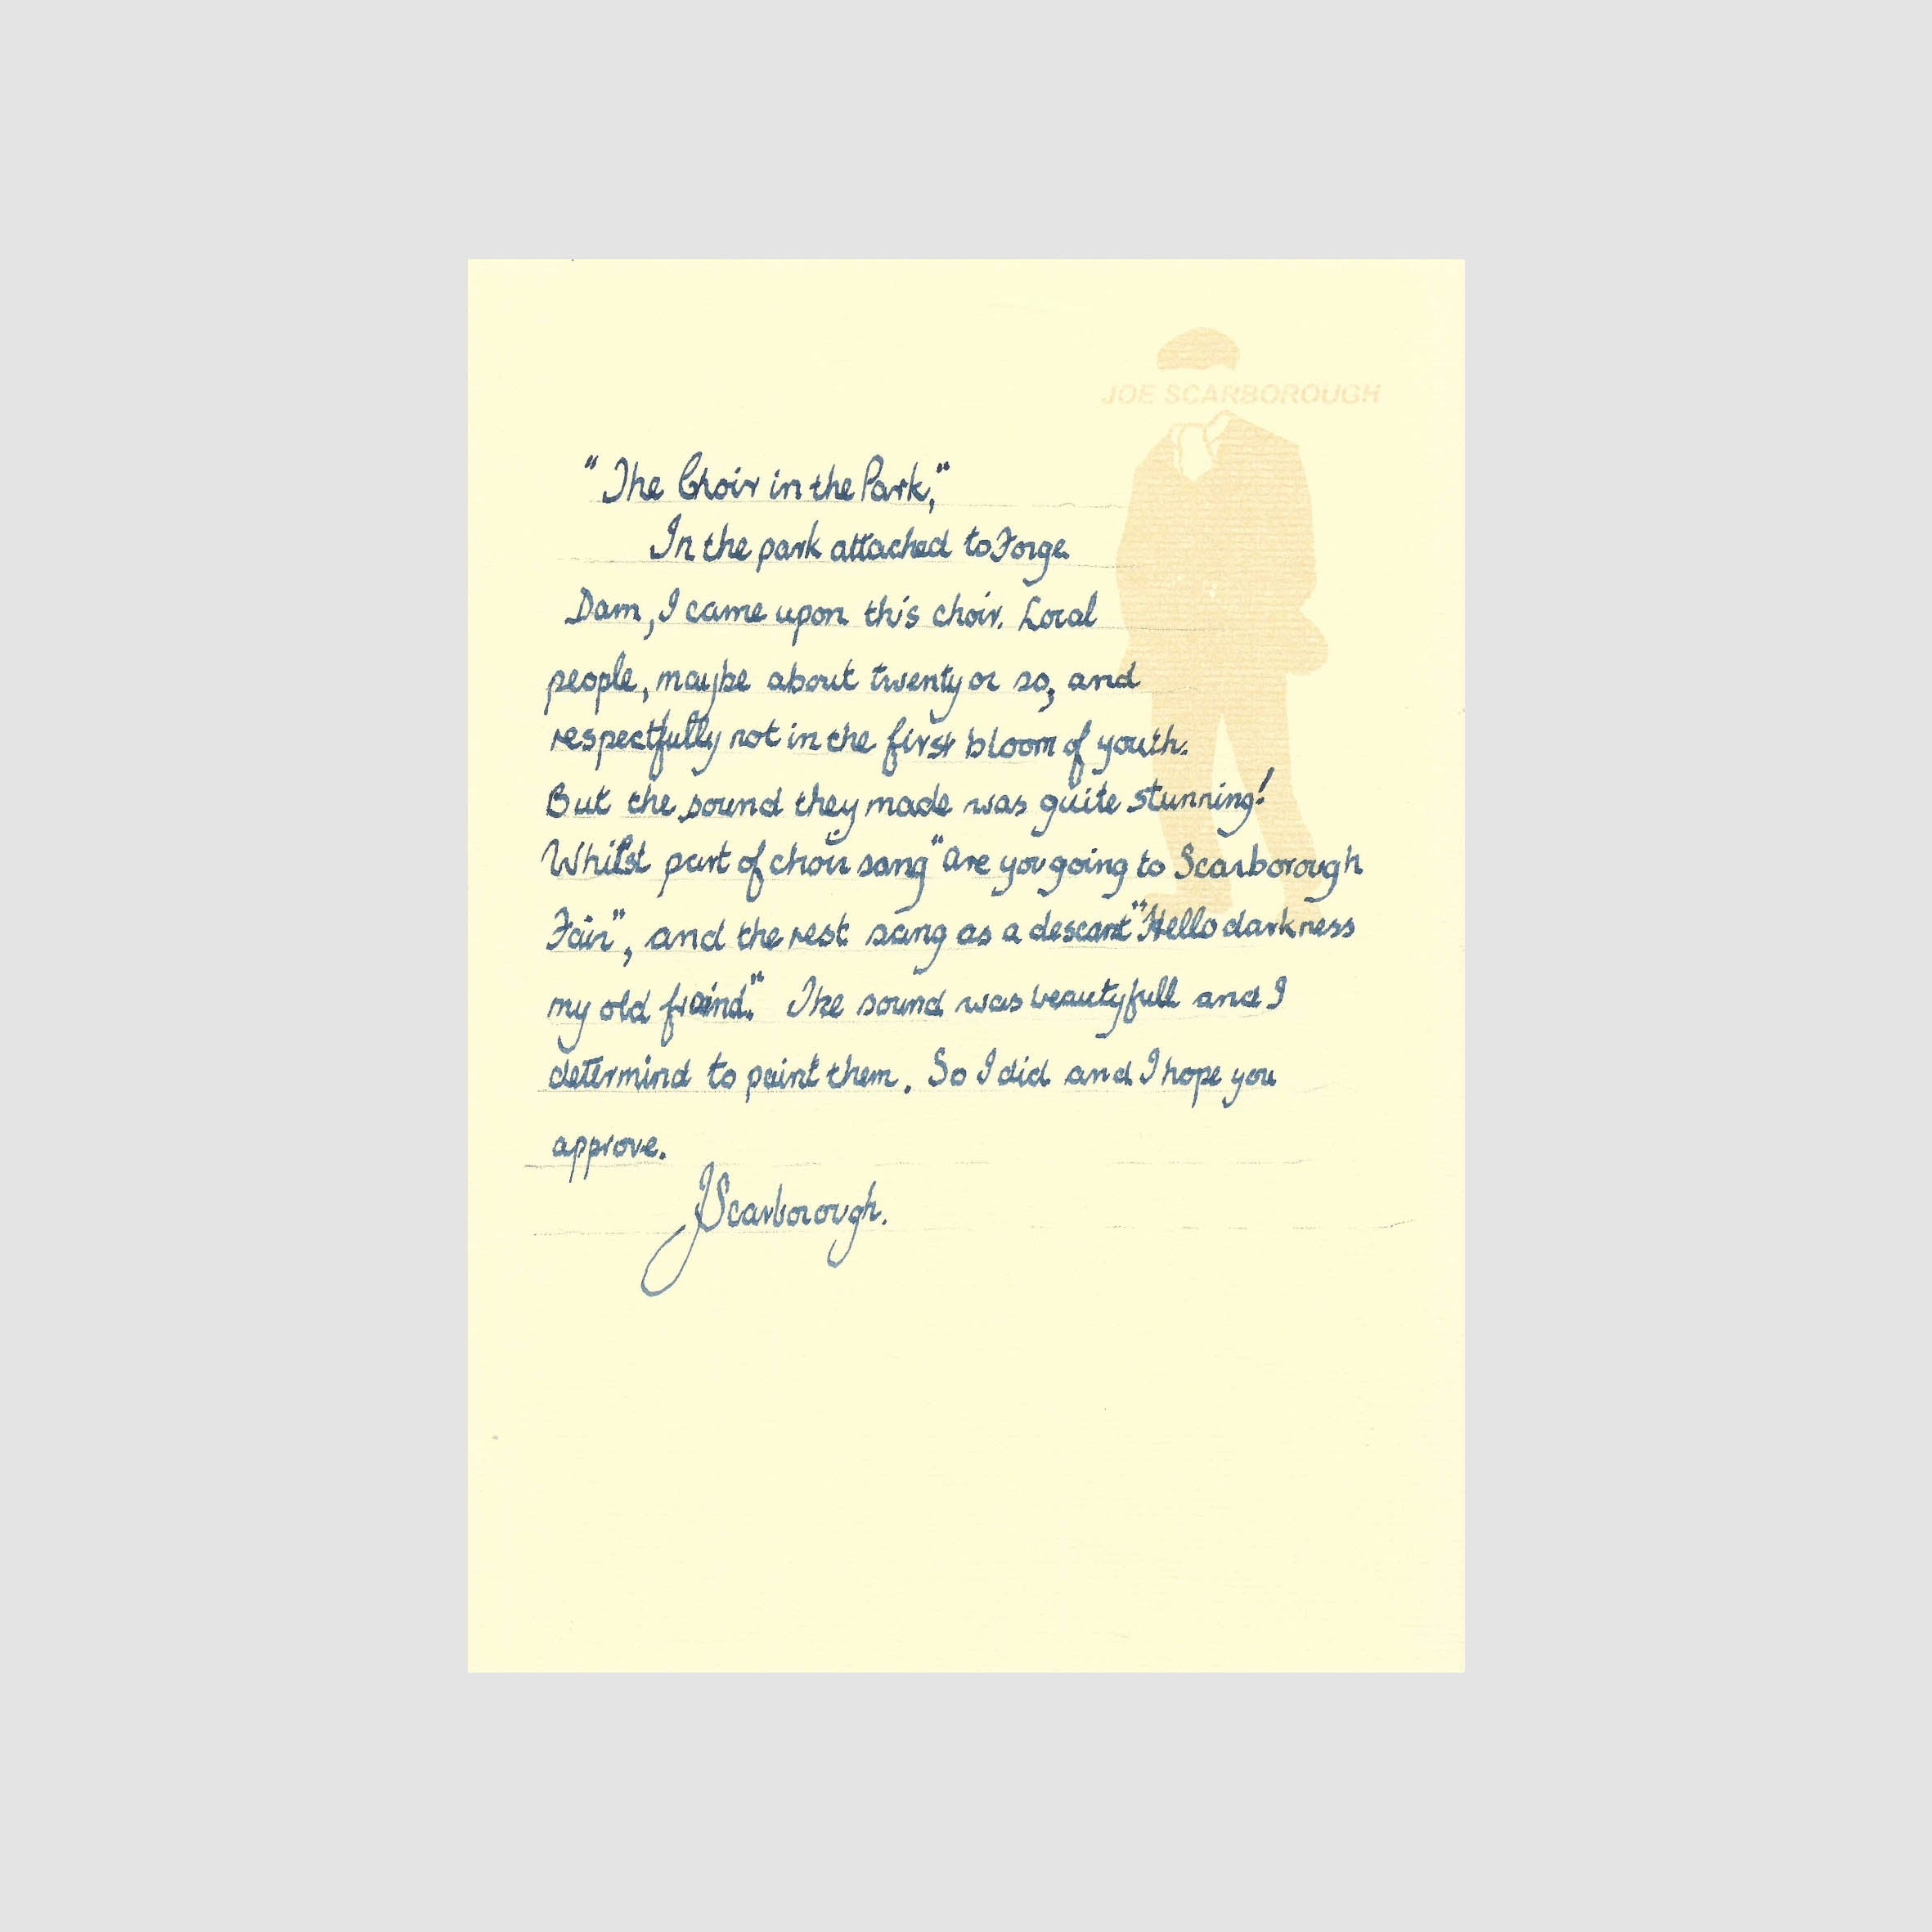 JOE SCARBOROUGH
"The Choir in the Park,"
In the park attached to Forge
Dam, I came upon this choir. Local
people, maybe about twenty or so, and
respectfully not in the first bloom of youth.
But the sound they made was quite stunning!
Whilst part of choir sang "Are you going to Scarborough
Fair", and the rest sang as a descant "Hello darkness
my old freind." The sound was beautyfull and I
determind to paint them. So I did and I hope you
approve.
JScarborough.